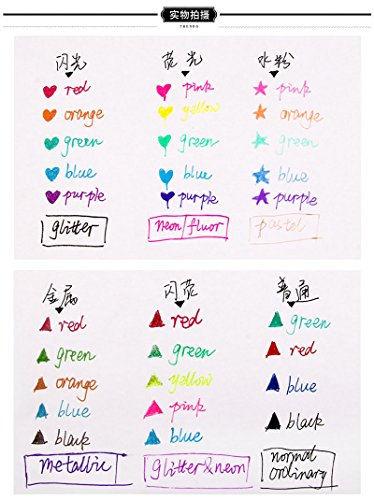 实物拍摄
闪光 荧光 水粉
red pink pink
orange yellow orange
green green green
blue blue blue
purple purple purple
glitter neon/fluor pastel
金属 闪荧 普通
red red green
green green red
orange yellow blue
blue pink black
black blue normal
metallic glitter&neon ordinary